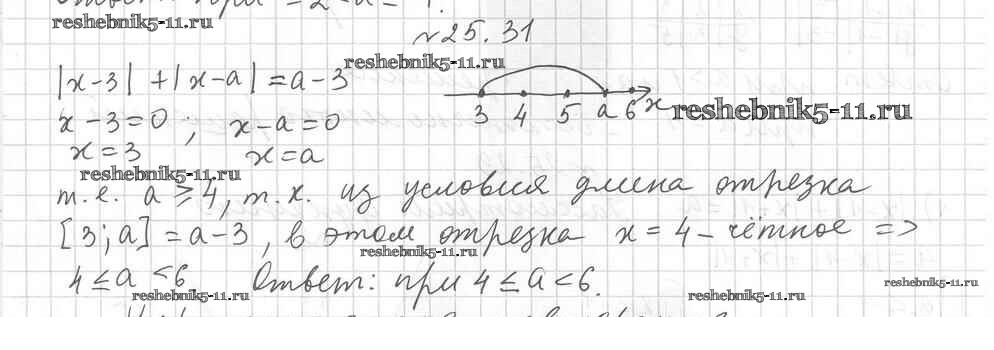 reshebnik5-11.ru
№25.31
reshebnik5-11.ru
|x-3| + |x-a| = a-3
3 4 5 a 6 x
reshebnik5-11.ru
x-3=0; x-a=0
x=3 x=a
reshebnik5-11.ru
т.е. a ≥ 4, т.к. из условия длина отрезка
[3; a] = a-3, в этом отрезка x = 4 - чётное =>
reshebnik5-11.ru
4 ≤ a < 6 Ответ: при 4 ≤ a < 6.
reshebnik5-11.ru reshebnik5-11.ru reshebnik5-11.ru